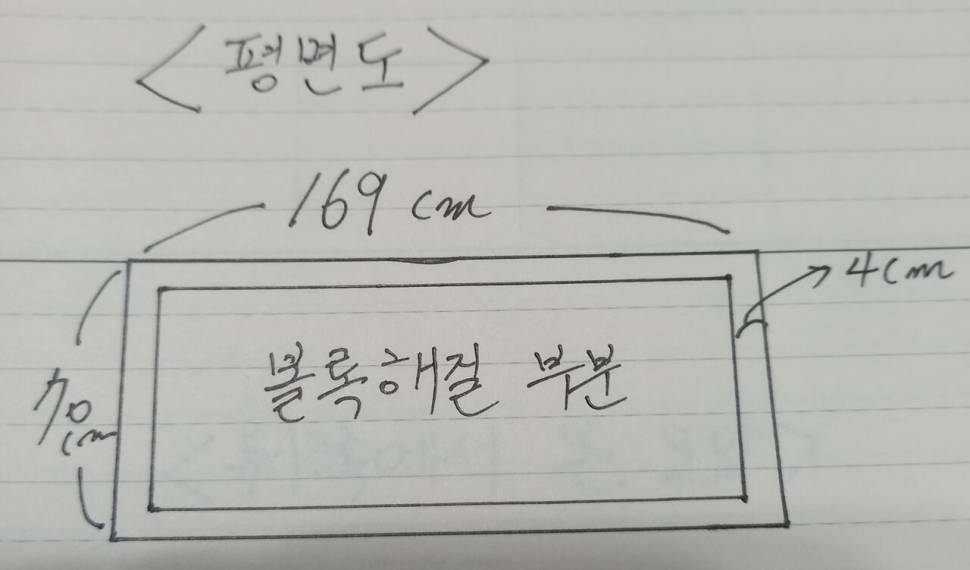 <평면도>
169 cm
4cm
볼록해질 부분
70
cm